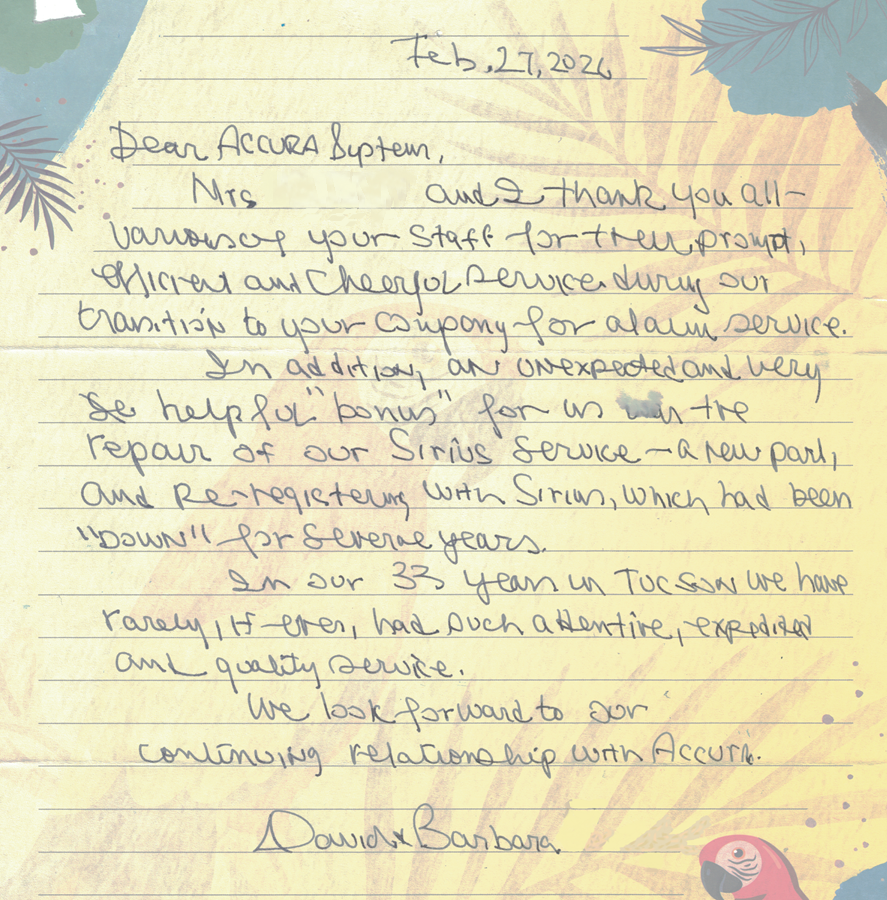 Feb, 27, 2026
Dear ACCURA System,
Mrs and I thank you all -
various of your Staff for their prompt,
efficient and cheerful service during our
transition to your company for alarm service.
In addition, an unexpected and very
helpful "bonus" for us was the
repair of our Sirius Service - a new part,
and Re-registering with Sirius, which had been
"DOWN" for several years.
In our 33 years in Tucson we have
rarely, if-ever, had such attentive, expedited
and quality service.
We look forward to our
continuing relationship with Accura.
David & Barbara